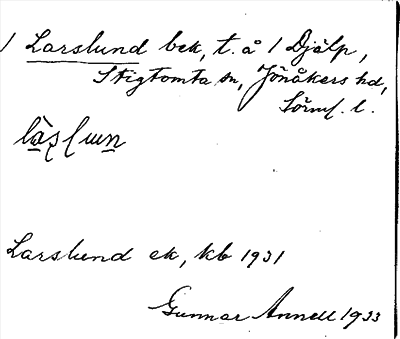 1 Larslund bek, t. å 1 Djälp,
Stigtomta sn, Jönåkers hd,
Sörml. l.
Larslund ek, kb 1931
Gunnar Annell 1933